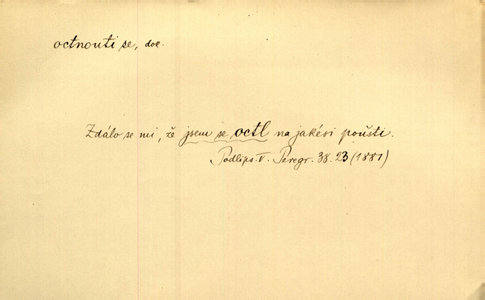 octnouti se, dok.
Zdálo se mi, že jsem se octl na jakési poušti.
Podlips. V. Peregr. 38. 23 (1881)